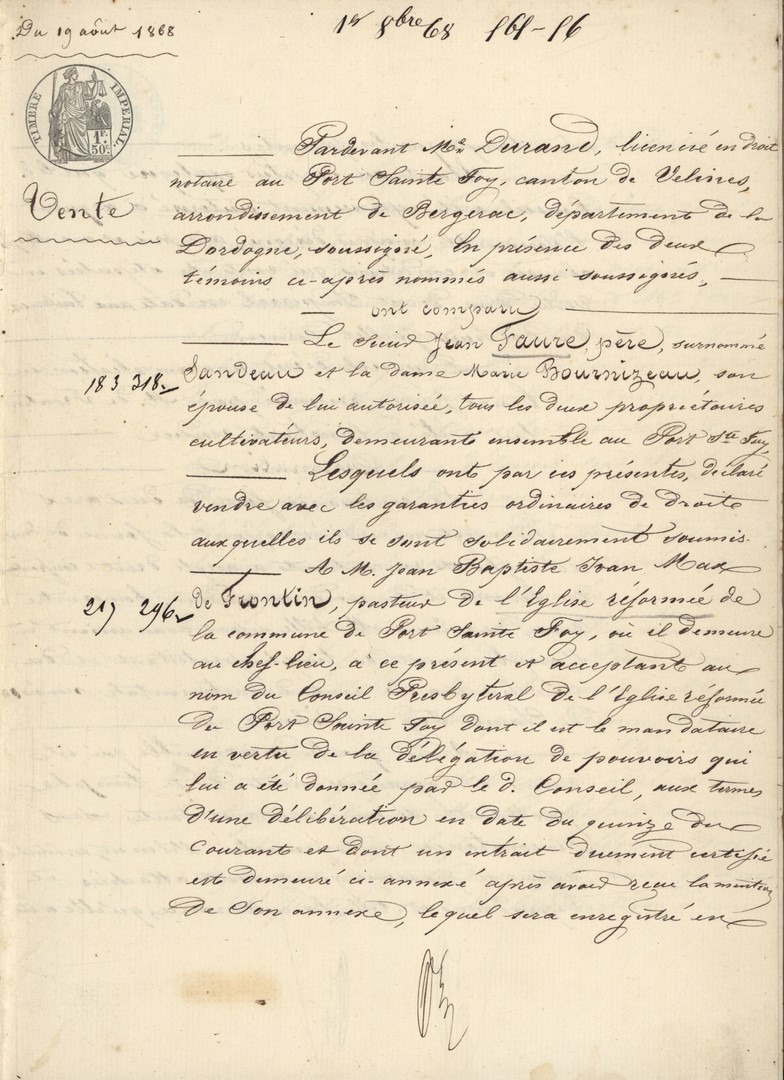 Du 19 août 1868
1er 8bre 68
TIMBRE IMPERIAL.
1F. 50c.
Vente
Pardevant Me Durand, licencié en droit
notaire au Port Sainte Foy, canton de Velines,
arrondissement de Bergerac, département de la
Dordogne, soussigné, En présence des deux
témoins ci-après nommés aussi soussignés,
ont comparu
Le Sieur Jean Faure, père, surnommé
183 318
Sandeau et la dame Marie Bournizeau, son
épouse de lui autorisée, tous les deux propriétaires
cultivateurs, demeurant ensemble au Port Ste Foy,
Lesquels ont par ces présentes, déclaré
vendre avec les garanties ordinaires de droit
auxquelles ils se sont solidairement soumis.
A M. Jean Baptiste Ivan Max
217 296
de Frontin, pasteur de l'Eglise réformée de
la commune de Port Sainte Foy, où il demeure
au chef-lieu, à ce présent et acceptant au
nom du Conseil Presbytéral de l'Eglise réformée
du Port Sainte Foy dont il est le mandataire
en vertu de la délégation de pouvoirs qui
lui a été donnée par le d. Conseil, aux termes
d'une délibération en date du quinze du
courant et dont un extrait duement certifié
est demeuré ci-annexé après avoir reçu la mention
de son annexe, lequel sera enregistré en